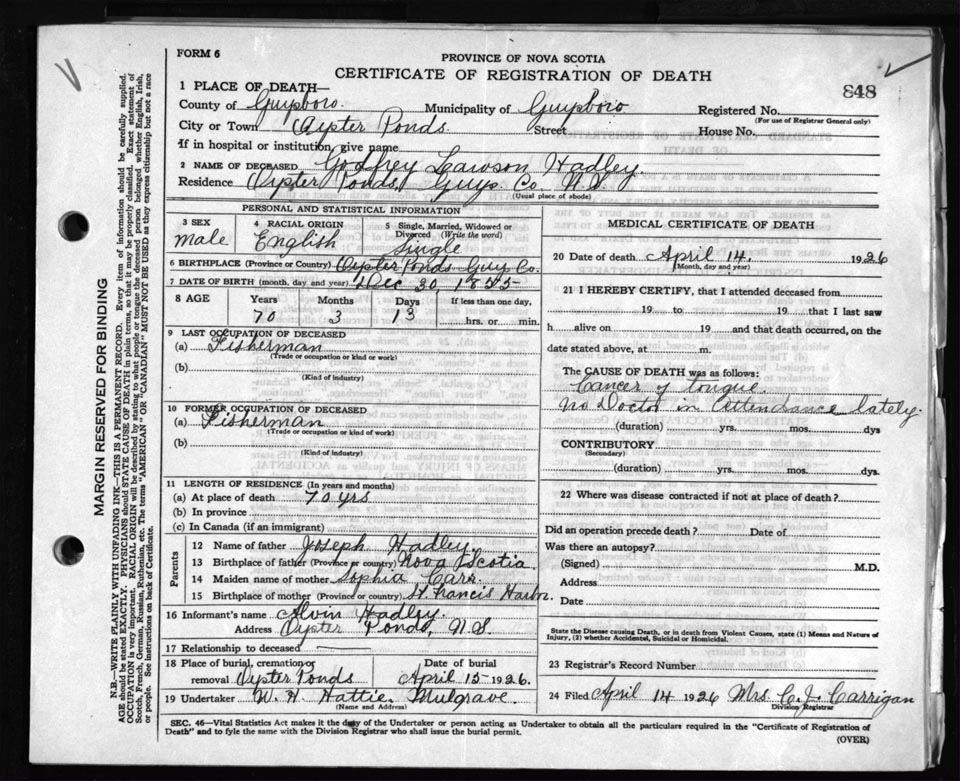 FORM 6
PROVINCE OF NOVA SCOTIA
CERTIFICATE OF REGISTRATION OF DEATH
848
1 PLACE OF DEATH—
County of Guysboro. Municipality of Guysboro Registered No.
(For use of Registrar General only)
City or Town Oyster Ponds. Street House No.
If in hospital or institution, give name
2 NAME OF DECEASED Godfrey Lawson Hadley.
Residence Oyster Ponds, Guys. Co. N.S.
(Usual place of abode)
PERSONAL AND STATISTICAL INFORMATION
3 SEX 4 RACIAL ORIGIN 5 Single, Married, Widowed or Divorced (Write the word)
male English Single
6 BIRTHPLACE (Province or Country) Oyster Ponds Guy Co.
7 DATE OF BIRTH (month, day, and year) Dec 30, 1855
8 AGE Years Months Days If less than one day,
70 3 13 hrs. or min.
9 LAST OCCUPATION OF DECEASED
(a) Fisherman
(Trade or occupation or kind or work)
(b)
(Kind of industry)
10 FORMER OCCUPATION OF DECEASED
(a) Fisherman
(Trade or occupation or kind of work)
(b)
(Kind of industry)
11 LENGTH OF RESIDENCE (In years and months)
(a) At place of death 70 yrs
(b) In province
(c) In Canada (if an immigrant)
Parents
12 Name of father Joseph Hadley.
13 Birthplace of father (Province or country) Nova Scotia.
14 Maiden name of mother Sophia Carr.
15 Birthplace of mother (Province or country) St. Francis Harbor
16 Informant's name Alvin Hadley.
Address Oyster Ponds, N.S.
17 Relationship to deceased
18 Place of burial, cremation or removal Oyster Ponds Date of burial April 15 1926.
19 Undertaker W. H. Hattie Mulgrave.
(Name and Address)
MEDICAL CERTIFICATE OF DEATH
20 Date of death April 14. 1926
(Month, day and year)
21 I HEREBY CERTIFY, that I attended deceased from
19 to 19 that I last saw
h alive on 19 and that death occurred, on the
date stated above, at m.
The CAUSE OF DEATH was as follows:
Cancer of tongue.
No Doctor in attendance lately.
(duration) yrs. mos. dys
CONTRIBUTORY
(Secondary)
(duration) yrs. mos. dys.
22 Where was disease contracted if not at place of death?
Did an operation precede death? Date of
Was there an autopsy?
(Signed) M.D.
Address
Date
State the Disease causing Death, or in death from Violent Causes, state (1) Means and Nature of
Injury, (2) whether Accidental, Suicidal or Homicidal.
23 Registrar's Record Number
24 Filed April 14 1926 Mrs. C. J. Carrigan
Division Registrar
SEC. 46—Vital Statistics Act makes it the duty of the Undertaker or person acting as Undertaker to obtain all the particulars required in the "Certificate of Registration of
Death" and to fyle the same with the Division Registrar who shall issue the burial permit.
(OVER)
MARGIN RESERVED FOR BINDING
N.B.—WRITE PLAINLY WITH UNFADING INK—THIS IS A PERMANENT RECORD. Every item of information should be carefully supplied.
AGE should be stated EXACTLY. PHYSICIANS should STATE CAUSE OF DEATH in plain terms, so that it may be properly classified. Exact statement of
OCCUPATION is very important. RACIAL ORIGIN will be described by stating to what people or tongue the deceased person belonged whether English, Irish,
Scotch, French, German, Russian, Ruthenian, etc. The terms "AMERICAN" OR "CANADIAN" MUST NOT BE USED as they express citizenship but not a race
or people. See instructions on back of Certificate.